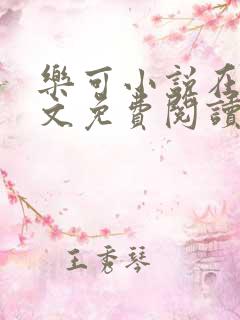 樂可小說在
文免費閱讀
王秀琴